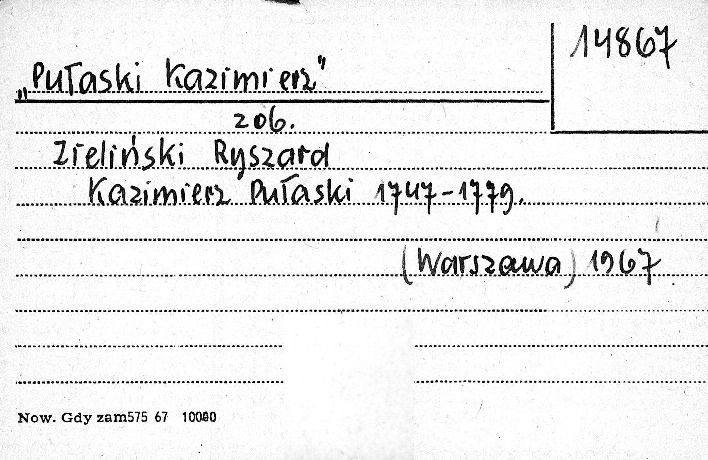 14867
„Pułaski Kazimierz"
zob.
Zieliński Ryszard
Kazimierz Pułaski 1747-1779.
(Warszawa) 1967
Now. Gdy zam575 67 10000